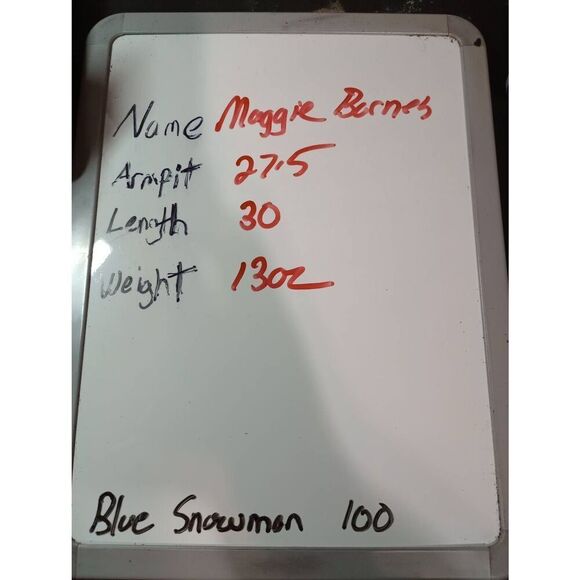 Name Maggie Barnes
Armpit 27.5
Length 30
Weight 13oz
Blue Snowman 100